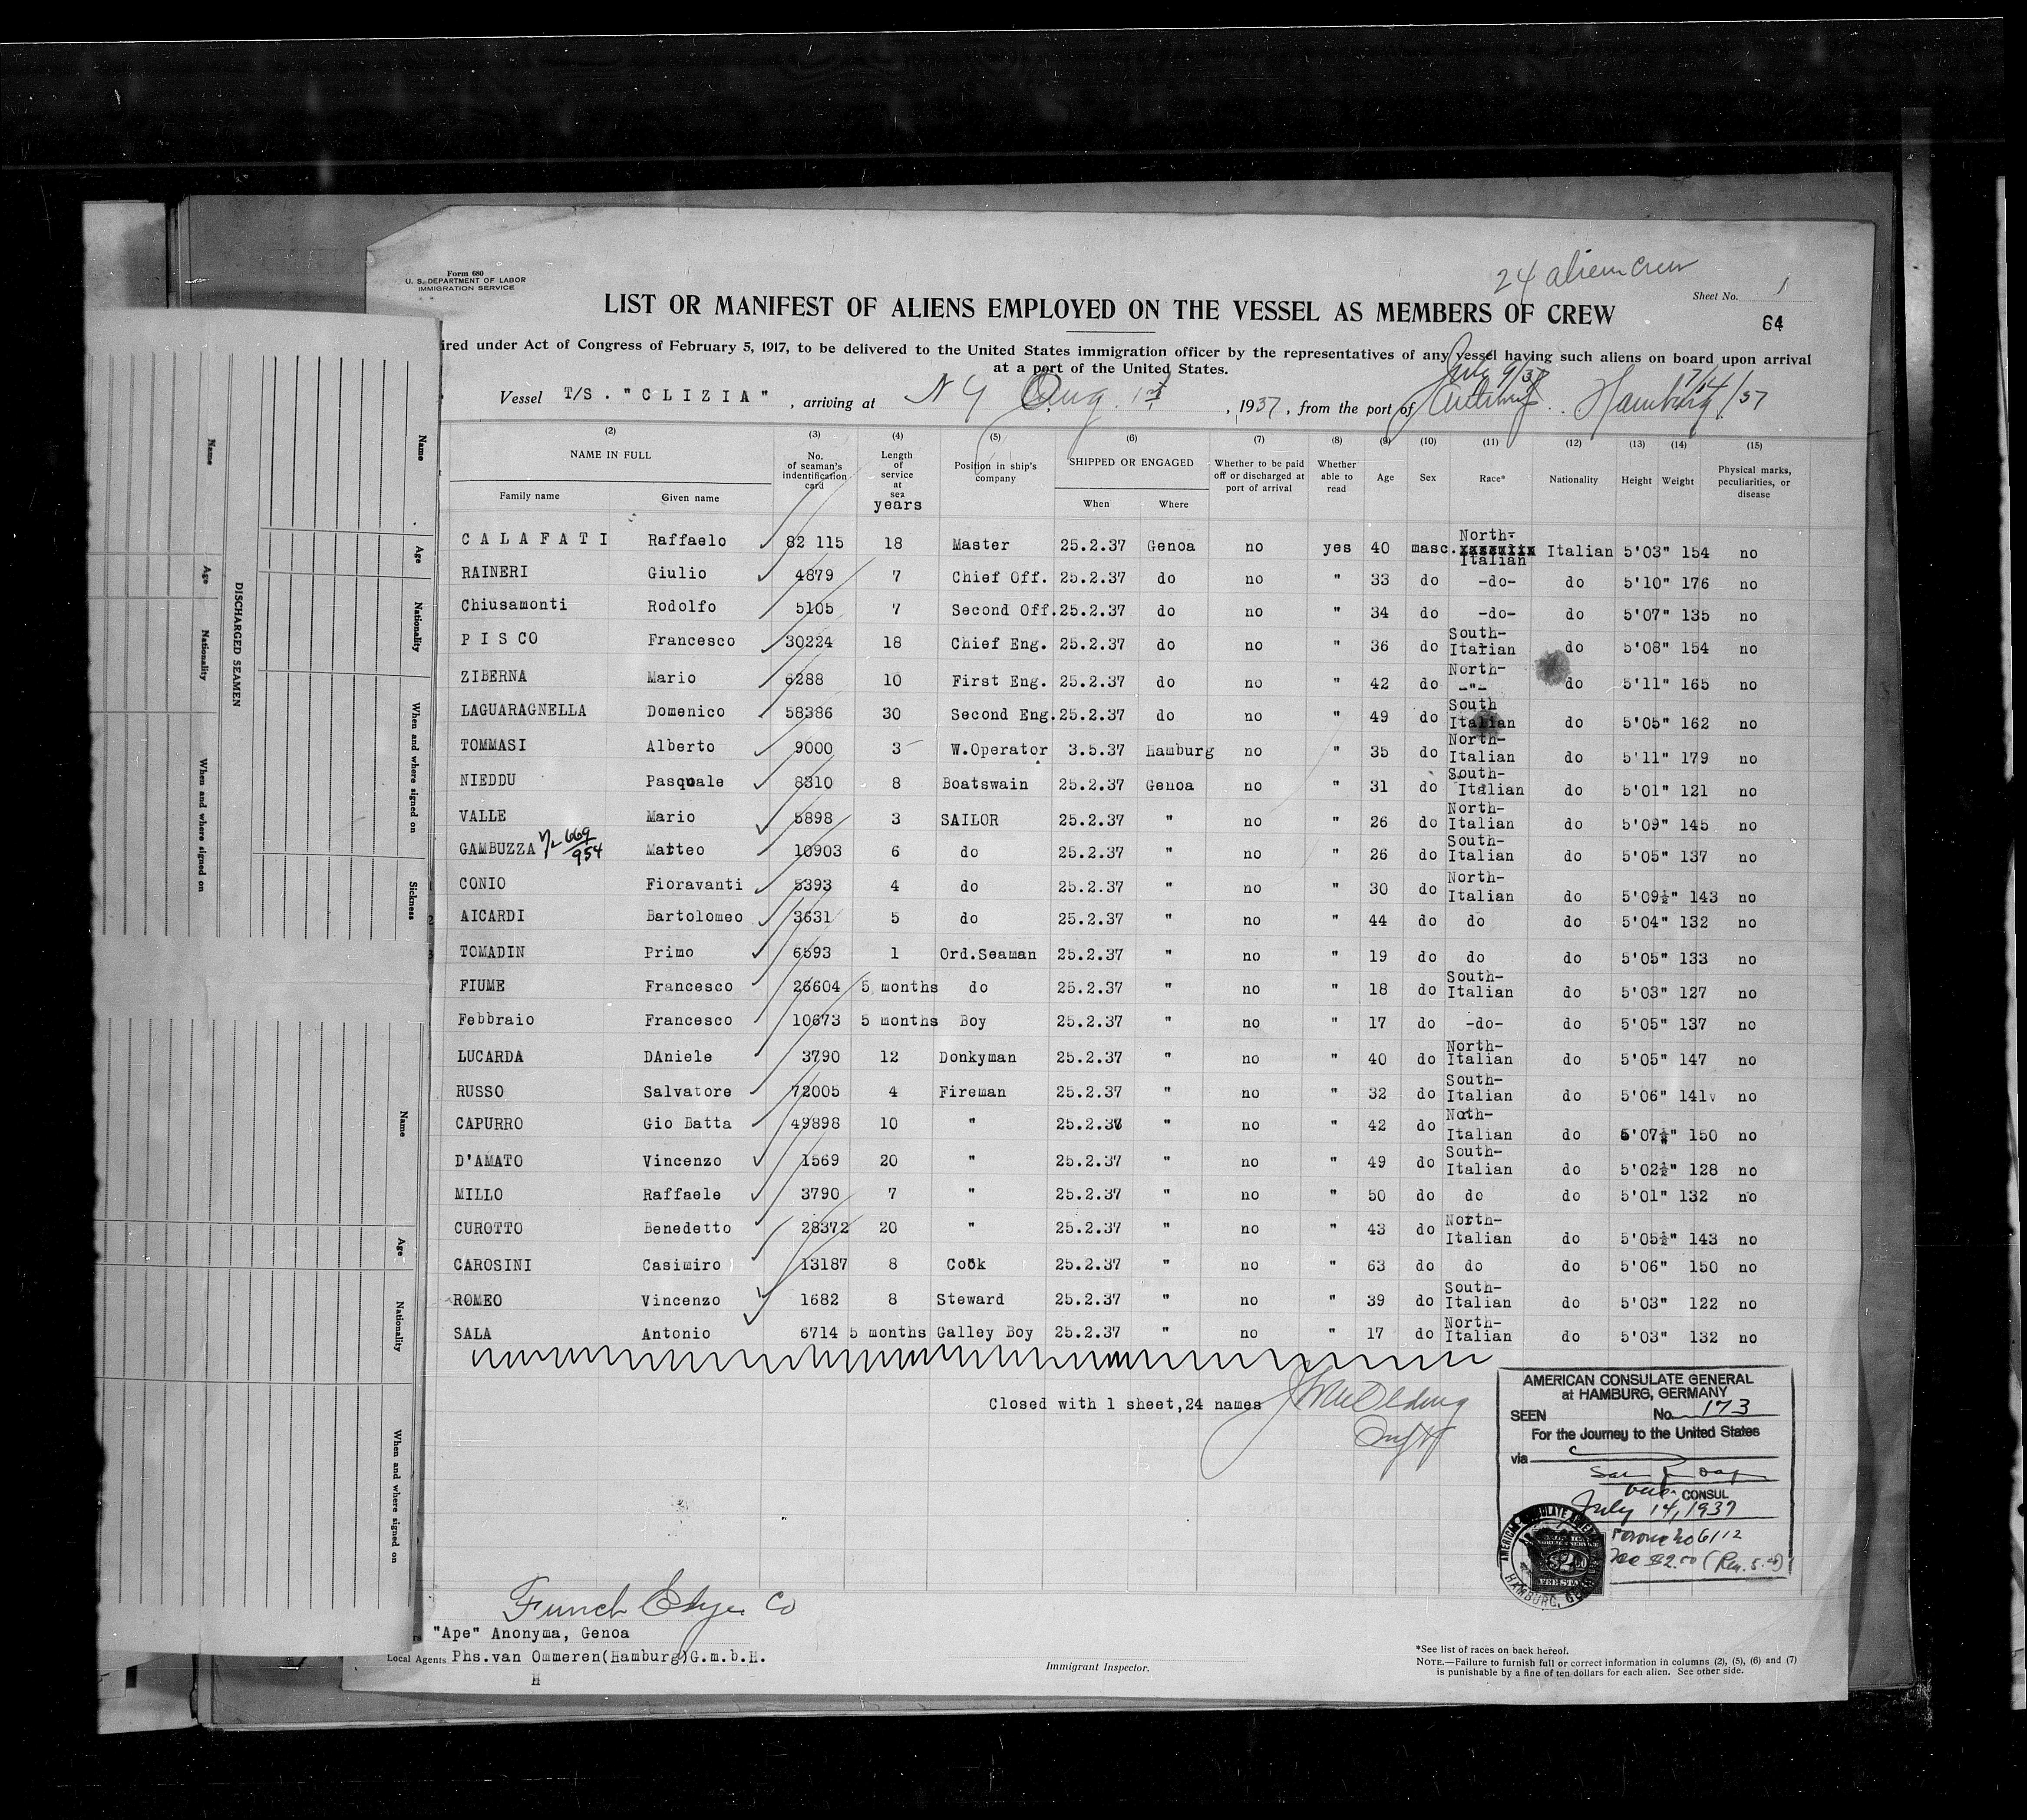 24 alien crew
Form 680
U. S. DEPARTMENT OF LABOR
IMMIGRATION SERVICE
Sheet No. 1
LIST OR MANIFEST OF ALIENS EMPLOYED ON THE VESSEL AS MEMBERS OF CREW
64
ired under Act of Congress of February 5, 1917, to be delivered to the United States immigration officer by the representatives of any vessel having such aliens on board upon arrival
at a port of the United States.
July 9/37 7/14/37
Vessel T/S. "CLIZIA" , arriving at N Y Aug. 1st , 1937, from the port of Hamburg
(2) (3) (4) (5) (6) (7) (8) (9) (10) (11) (12) (13) (14) (15)
NAME IN FULL No. of seaman's indentification card Length of service at sea years Position in ship's company SHIPPED OR ENGAGED Whether to be paid off or discharged at port of arrival Whether able to read Age Sex Race* Nationality Height Weight Physical marks, peculiarities, or disease
Family name Given name When Where
CALAFATI Raffaelo 82 115 18 Master 25.2.37 Genoa no yes 40 masc. North-Italian Italian 5'03" 154 no
RAINERI Giulio 4879 7 Chief Off. 25.2.37 do no " 33 do -do- do 5'10" 176 no
Chiusamonti Rodolfo 5105 7 Second Off. 25.2.37 do no " 34 do -do- do 5'07" 135 no
PISCO Francesco 30224 18 Chief Eng. 25.2.37 do no " 36 do South-Italian do 5'08" 154 no
ZIBERNA Mario 6288 10 First Eng. 25.2.37 do no " 42 do North- -"- do 5'11" 165 no
LAGUARAGNELLA Domenico 58386 30 Second Eng. 25.2.37 do no " 49 do South Italian do 5'05" 162 no
TOMMASI Alberto 9000 3 W.Operator 3.5.37 Hamburg no " 35 do North-Italian do 5'11" 179 no
NIEDDU Pasquale 8310 8 Boatswain 25.2.37 Genoa no " 31 do South-Italian do 5'01" 121 no
VALLE Mario 5898 3 SAILOR 25.2.37 " no " 26 do North-Italian do 5'09" 145 no
GAMBUZZA 669/954 Matteo 10903 6 do 25.2.37 " no " 26 do South-Italian do 5'05" 137 no
CONIO Fioravanti 5393 4 do 25.2.37 " no " 30 do North-Italian do 5'09½" 143 no
AICARDI Bartolomeo 3631 5 do 25.2.37 " no " 44 do do do 5'04" 132 no
TOMADIN Primo 6593 1 Ord.Seaman 25.2.37 " no " 19 do do do 5'05" 133 no
FIUME Francesco 26604 5 months do 25.2.37 " no " 18 do South-Italian do 5'03" 127 no
Febbraio Francesco 10673 5 months Boy 25.2.37 " no " 17 do -do- do 5'05" 137 no
LUCARDA DAniele 3790 12 Donkyman 25.2.37 " no " 40 do North-Italian do 5'05" 147 no
RUSSO Salvatore 72005 4 Fireman 25.2.37 " no " 32 do South-Italian do 5'06" 141 no
CAPURRO Gio Batta 49898 10 " 25.2.37 " no " 42 do Noth-Italian do 5'07½" 150 no
D'AMATO Vincenzo 1569 20 " 25.2.37 " no " 49 do South-Italian do 5'02½" 128 no
MILLO Raffaele 3790 7 " 25.2.37 " no " 50 do do do 5'01" 132 no
CUROTTO Benedetto 28372 20 " 25.2.37 " no " 43 do North-Italian do 5'05½" 143 no
CAROSINI Casimiro 13187 8 Cook 25.2.37 " no " 63 do do do 5'06" 150 no
ROMEO Vincenzo 1682 8 Steward 25.2.37 " no " 39 do South-Italian do 5'03" 122 no
SALA Antonio 6714 5 months Galley Boy 25.2.37 " no " 17 do North-Italian do 5'03" 132 no
Closed with 1 sheet,24 names
AMERICAN CONSULATE GENERAL
at HAMBURG, GERMANY
SEEN No. 173
For the Journey to the United States
via
CONSUL
July 14, 1937
Funch Edye Co
"Ape" Anonyma, Genoa
Local Agents Phs.van Ommeren(Hamburg)G.m.b.H.
H
Immigrant Inspector.
*See list of races on back hereof.
NOTE.—Failure to furnish full or correct information in columns (2), (5), (6) and (7)
is punishable by a fine of ten dollars for each alien. See other side.
DISCHARGED SEAMEN
Name
Age
Nationality
When and where signed on
Sickness
Name
Age
Nationality
When and where signed on
Name
Age
Nationality
When and where signed on